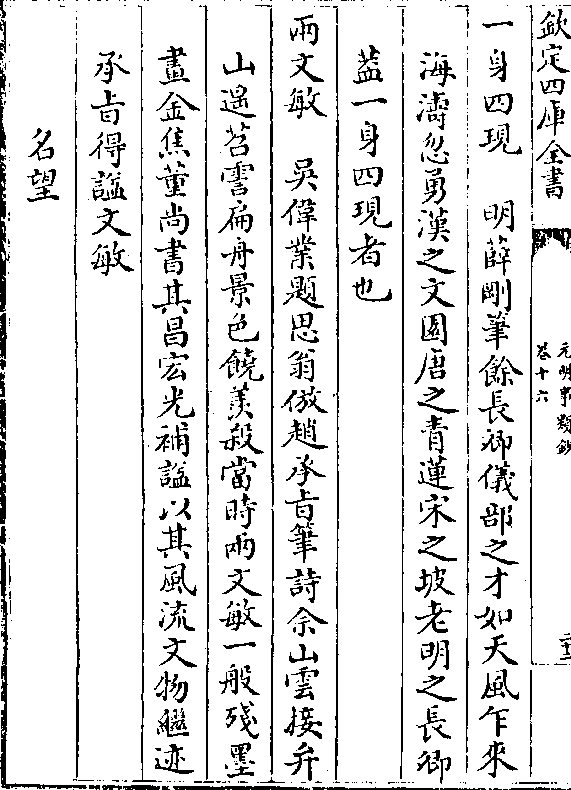 欽定四庫全書
元明事類鈔
卷十六
二十二
一身四現　明薛剛筆餘長卿儀部之才如天風乍來
海濤忽勇漢之文園唐之青蓮宋之坡老明之長卿
葢一身四現者也
兩文敏　吳偉業題思翁倣趙承旨筆詩佘山雲接弁
山遥苕霅扁舟景色饒羡殺當時兩文敏一般殘墨
畫金焦董尚書其昌宏光補諡以其風流文物繼迹
承旨得諡文敏
名望